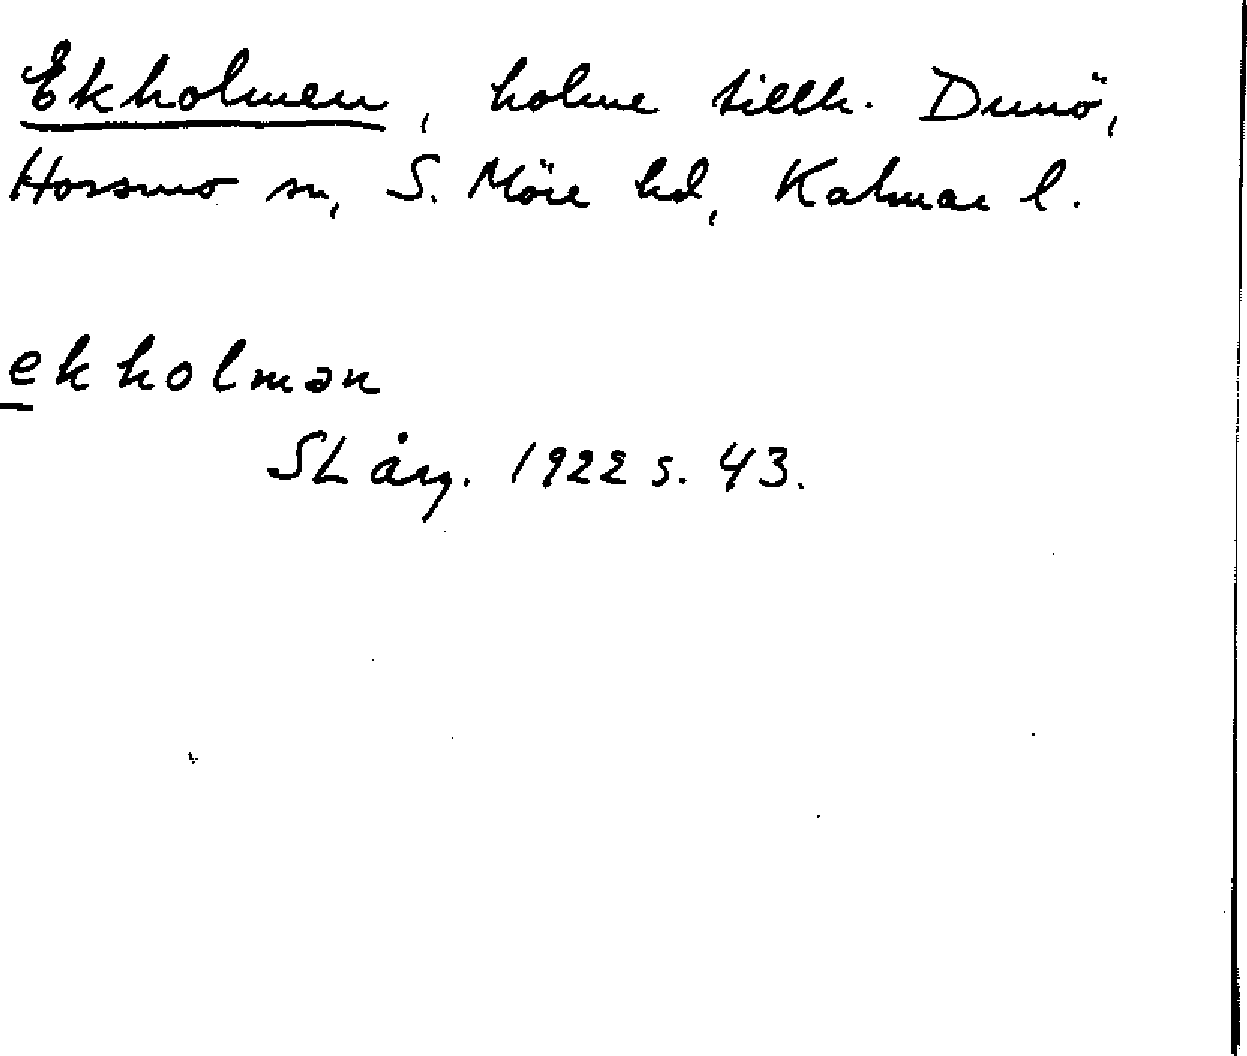 Ekholmen, holme tillh. Dunö,
Hossmo sn, S. Möre hd, Kalmar l.
ekholmən
SL årg. 1922 s. 43.